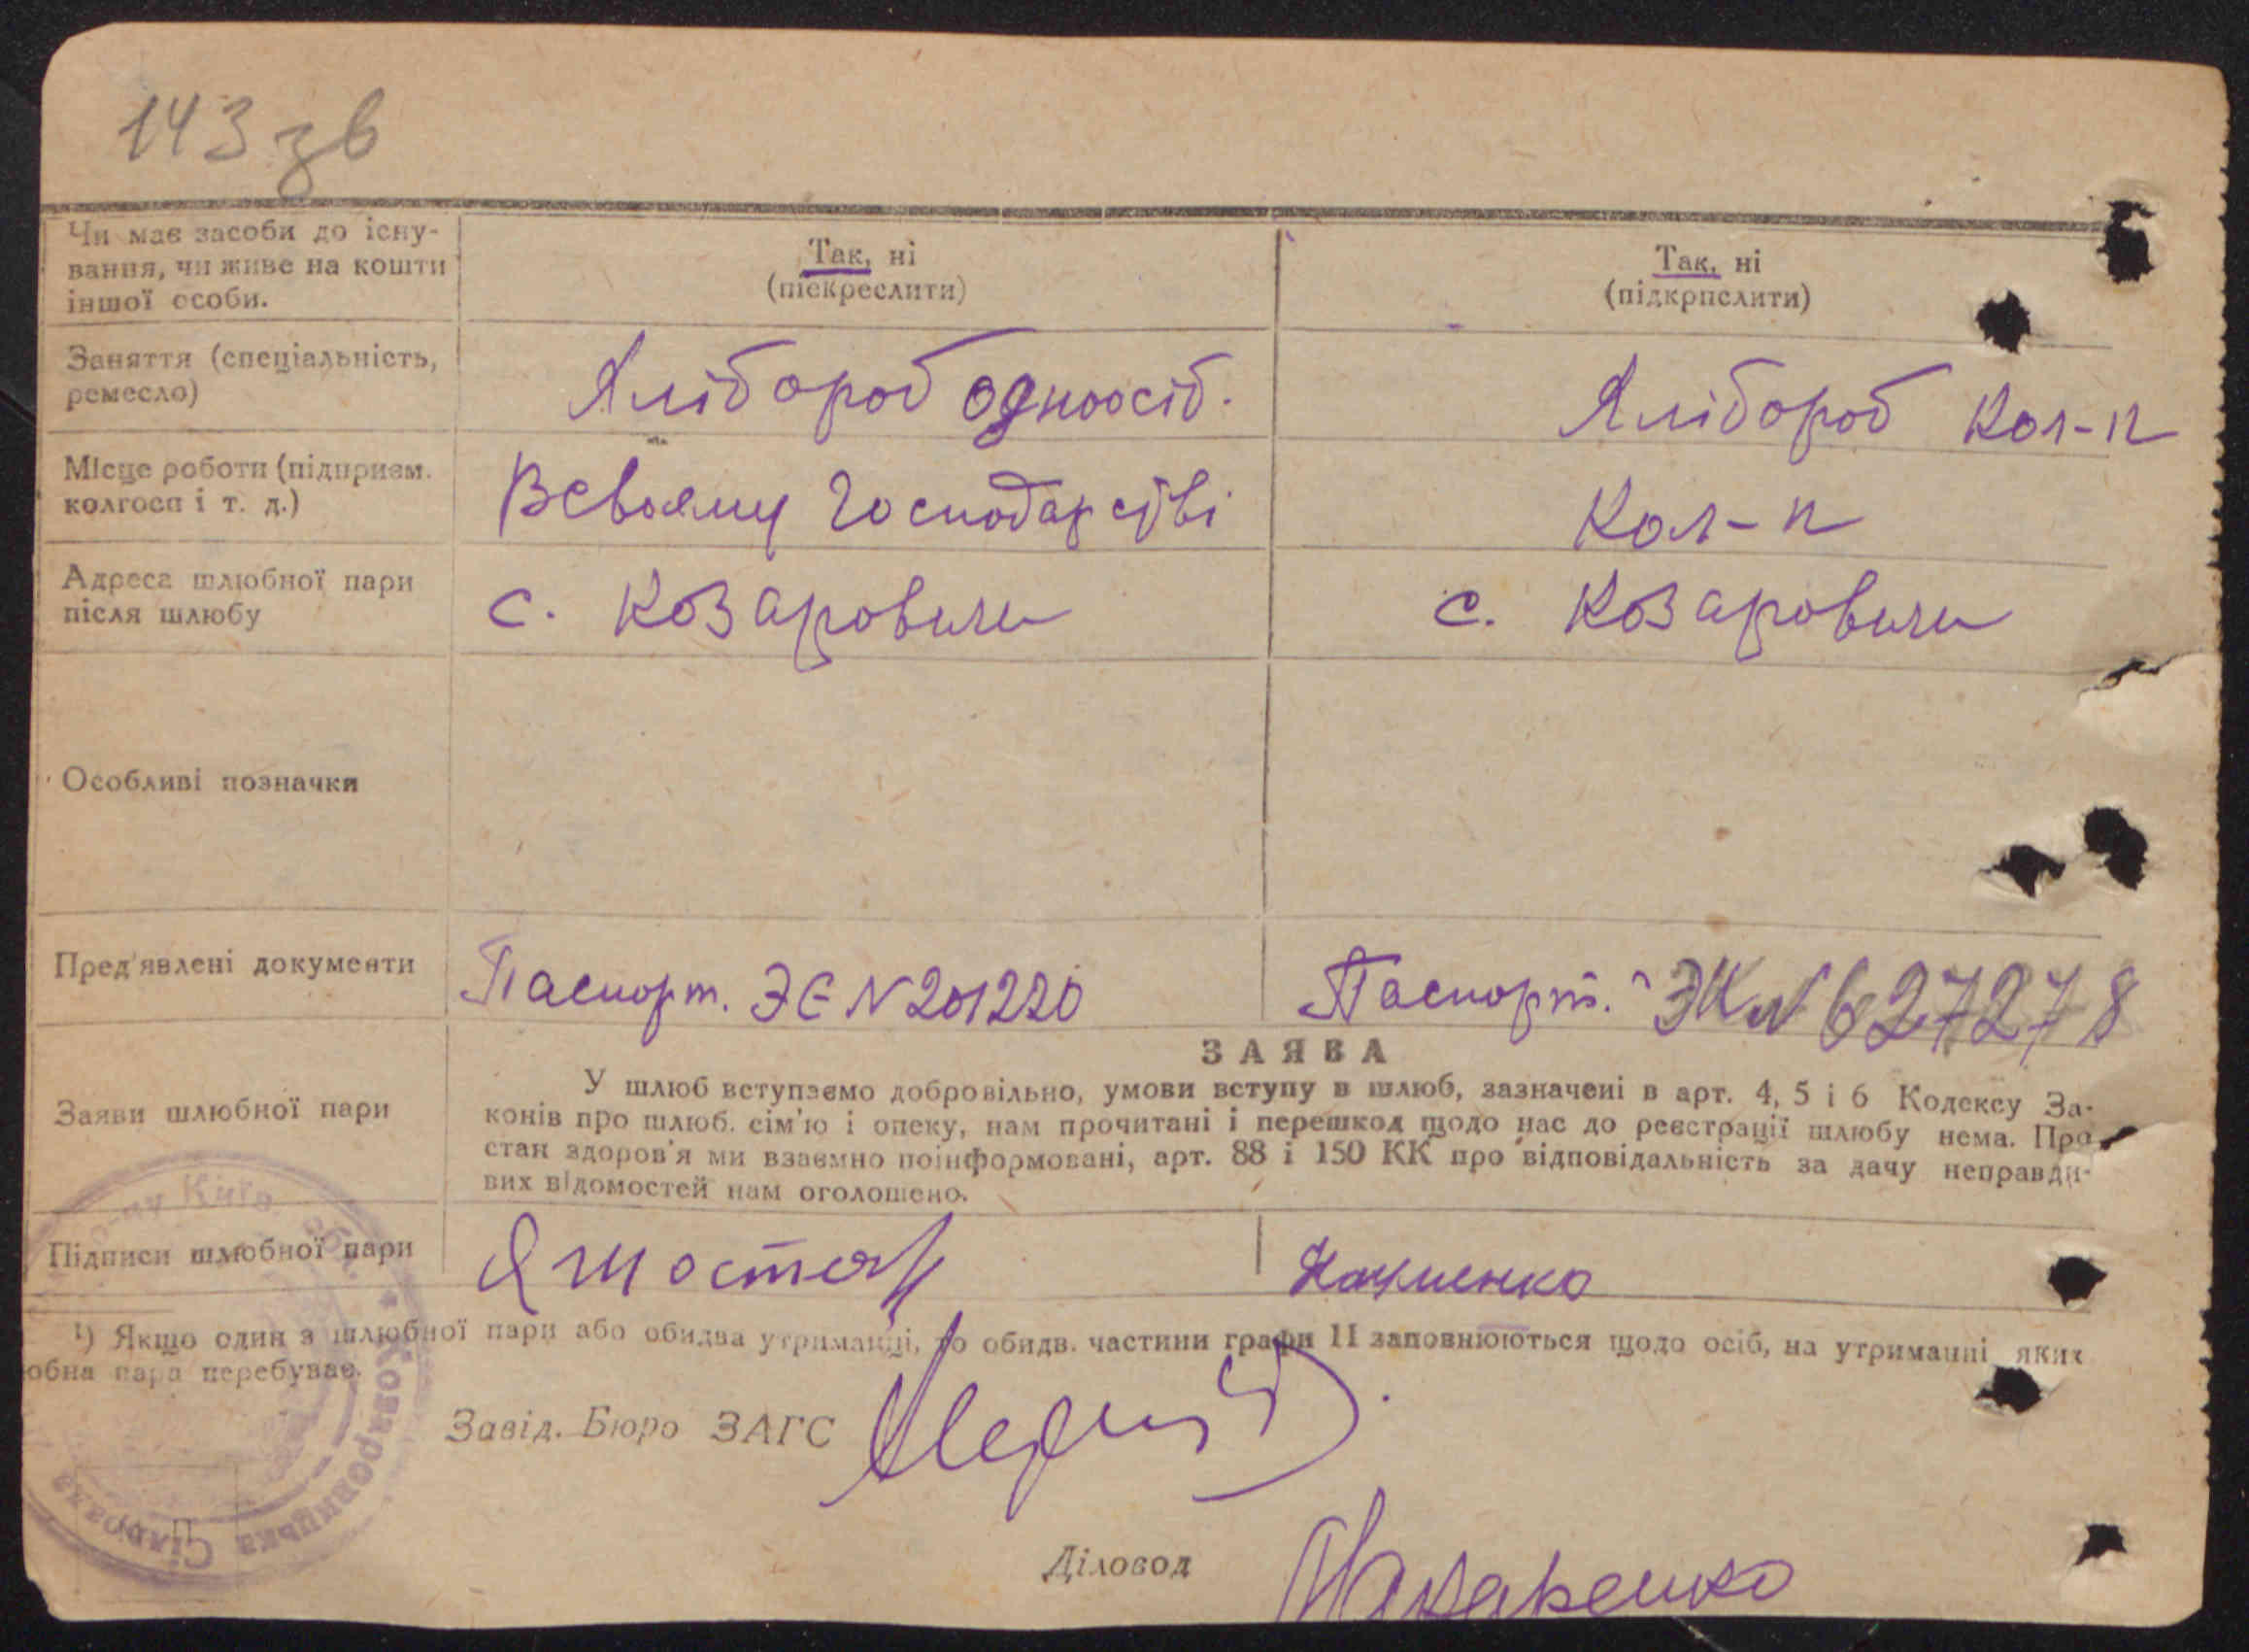 143 зв
Чи має засоби до існу-
вання, чи живе на кошти
іншої особи.
Так, ні
(піекреслити)
Так, ні
(підкрпслити)
Заняття (спеціальність,
ремесло)
Хлібороб одноосіб.
Хлібороб Кол-п
Місце роботи (підприєм.
колгосп і т. д.)
В своєму господарстві
Кол-п
Адреса шлюбної пари
після шлюбу
с. Козаровичи
с. Козаровичи
Особливі позначки
Пред'явлені документи
Паспорт. ЭЄ N 201220
Паспорт. N 627278
ЗАЯВА
Заяви шлюбної пари
У шлюб вступаємо добровільно, умови вступу в шлюб, зазначені в арт. 4, 5 і 6 Кодексу За-
конів про шлюб. сім'ю і опеку, нам прочитані і перешкод щодо нас до реєстрації шлюбу нема. Про
стан здоров'я ми взаємно поінформовані, арт. 88 і 150 КК про відповідальність за дачу неправди-
вих відомостей нам оголошено.
Підписи шлюбної пари
¹) Якщо один з шлюбної пари або обидва утриманці, то обидв. частини графи 11 заповнюються щодо осіб, на утриманні яких
юбна пара перебуває.
Завід. Бюро ЗАГС
Діловод
Макаренко
Козаровицька Сільрада